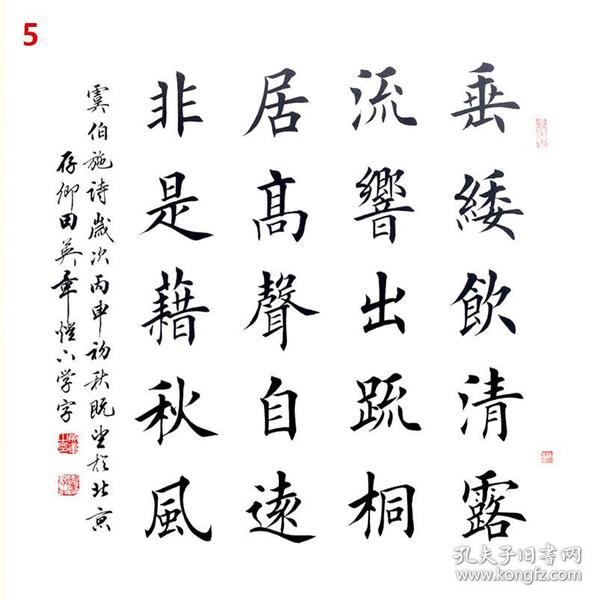 5
垂緌飲清露
流響出疏桐
居高聲自遠
非是藉秋風
虞伯施詩歲次丙申初秋既望於北京
存卿田英章惶六学字
孔夫子旧书网
www.kongfz.com